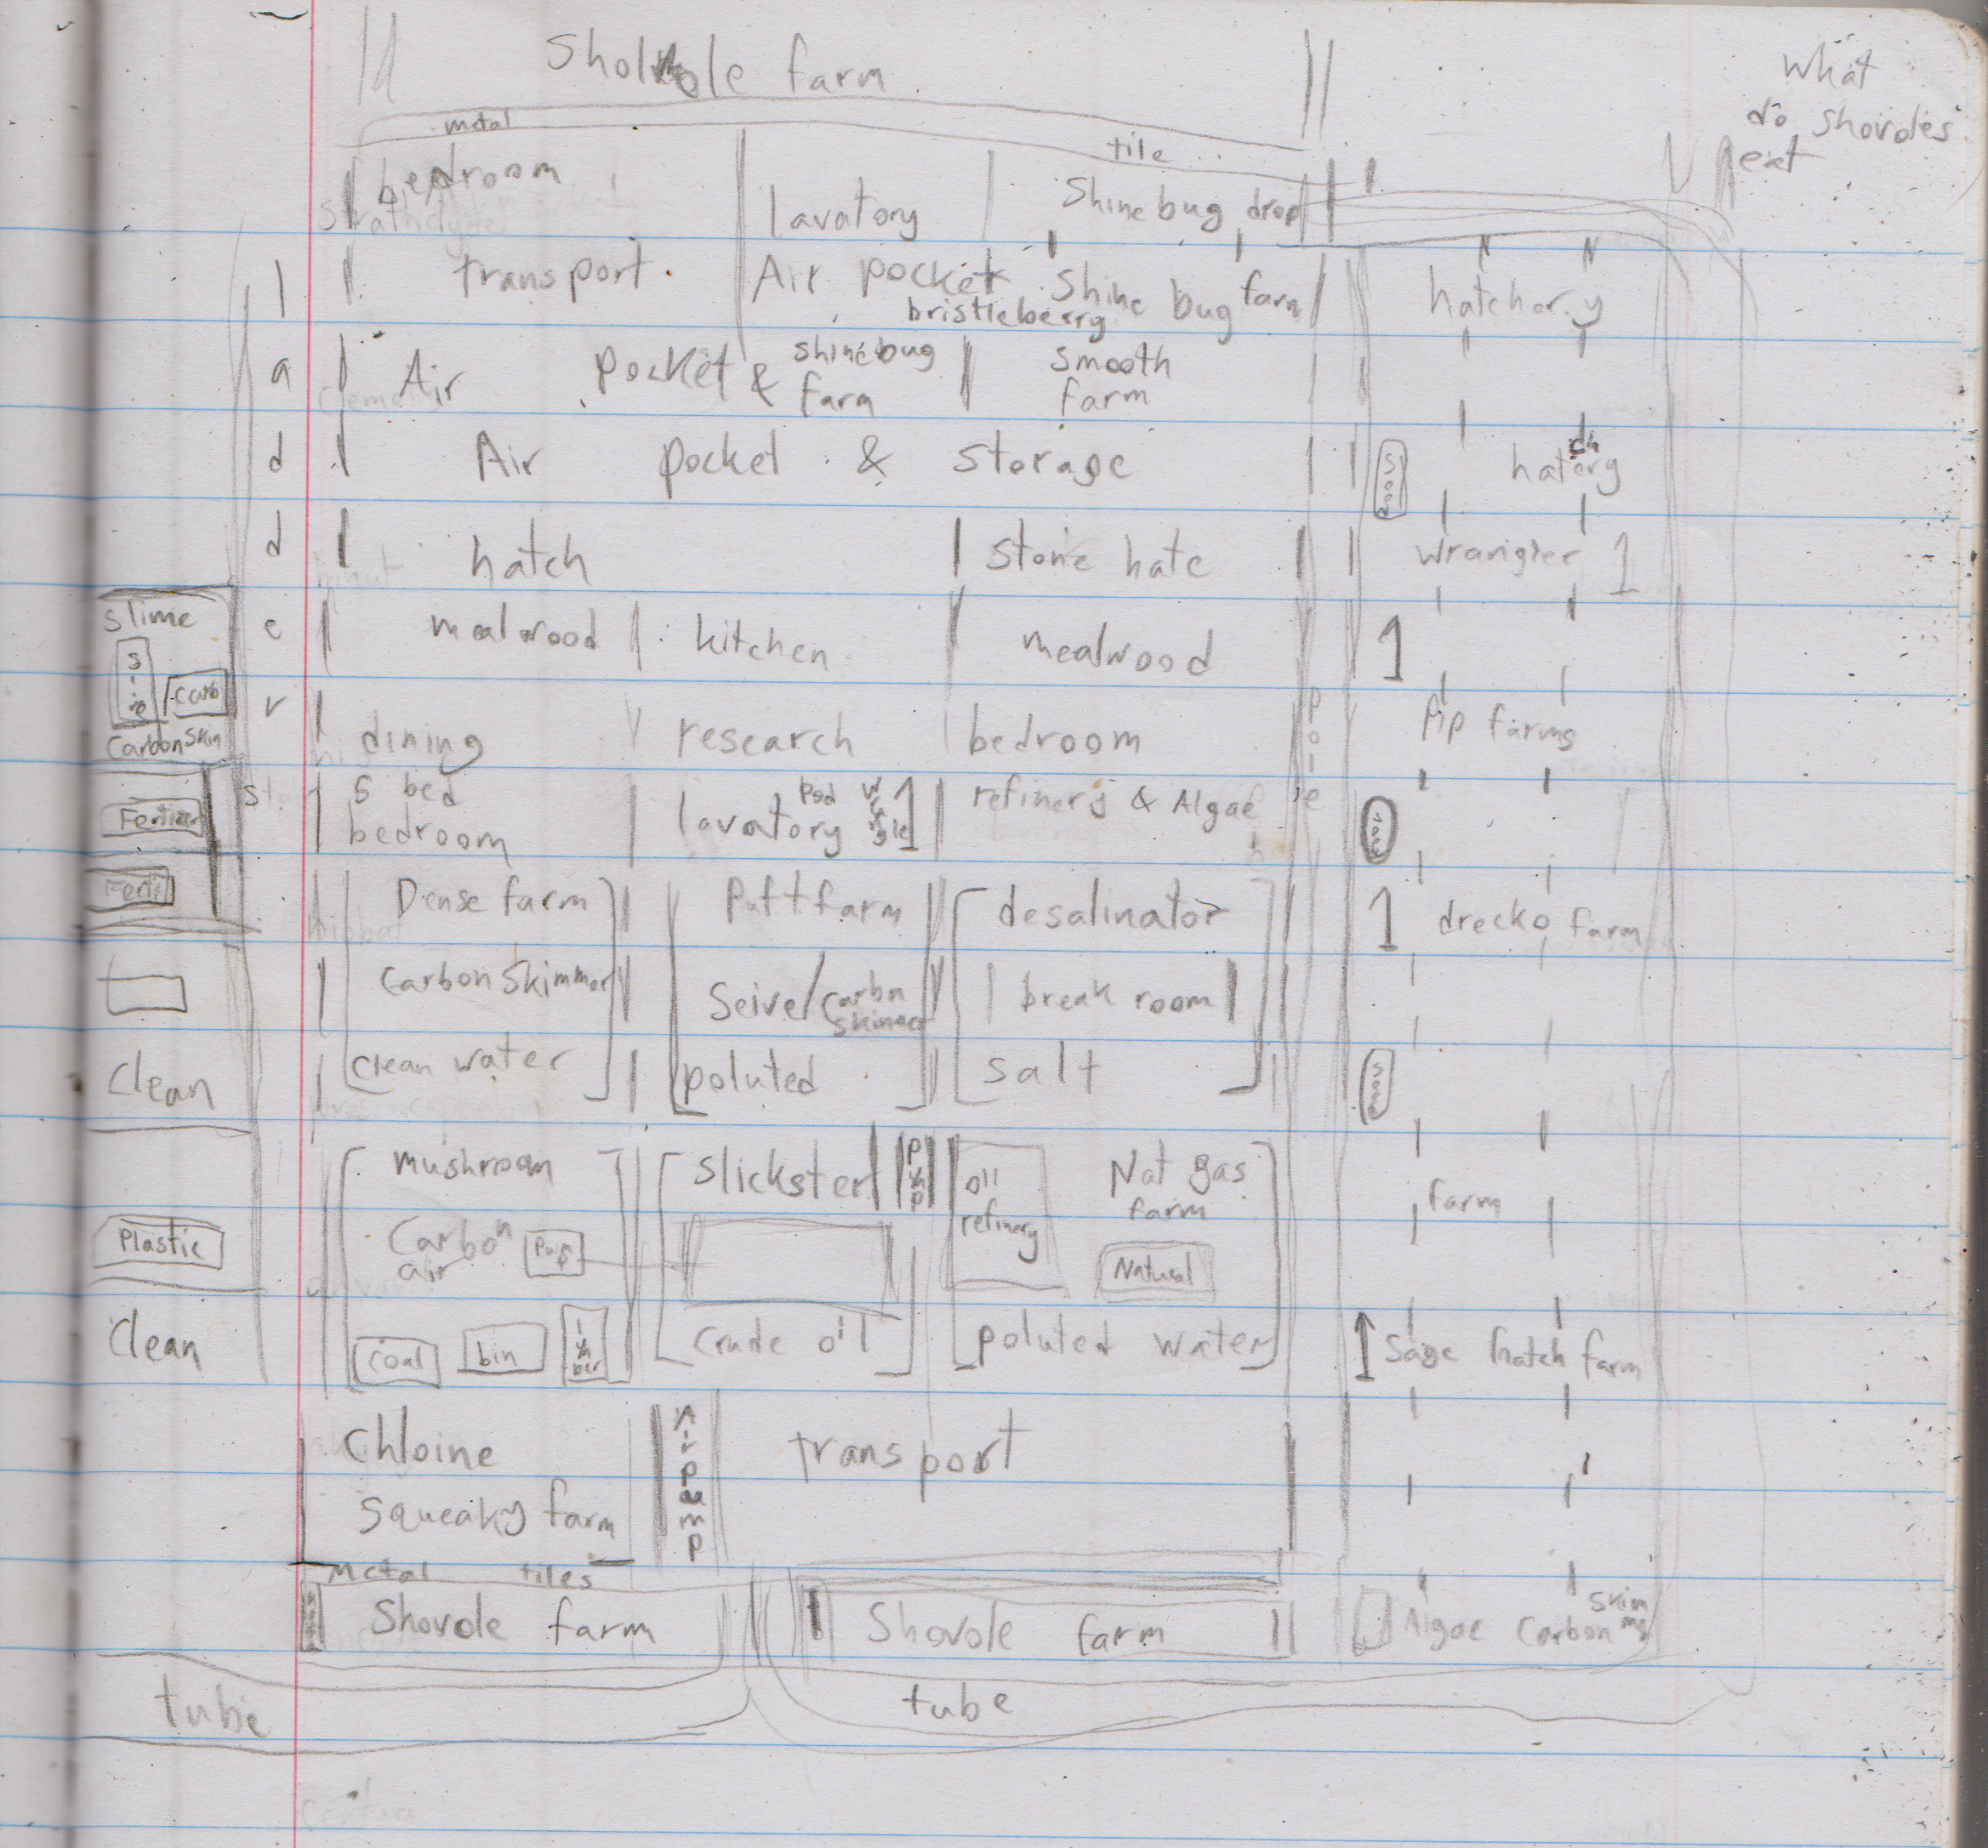 Sholvole farm
What
do shovoles
eat
metal
tile
bedroom
lavatory
Shine bug drop
transport
Air pocket
bristleberry
Shine bug farm
hatchery
Air pocket &
shinebug
farm
smooth
farm
Air pocket & storage
hatchery
ladders
hatch
stone hatc
wrangler 1
slime
carb
carbon skim
mealwood
kitchen
mealwood
1
dining
research
bedroom
pole
pip farms
5 bed
bedroom
lavatory
refinery & Algae
Dense farm
Puft farm
desalinator
1 drecko farm
carbon skimmer
Seive/carbn
skimmer
break room
clean
clean water
poluted
salt
mushroom
slickster
pump
oil
refinery
Nat gas
farm
farm
Plastic
Carbon
air
pump
Natural
clean
coal
bin
crude oil
poluted water
Sage hatch farm
Chloine
squeaky farm
Air pump
transport
metal tiles
Shovole farm
Shovole farm
Algae carbon skimmer
tube
tube